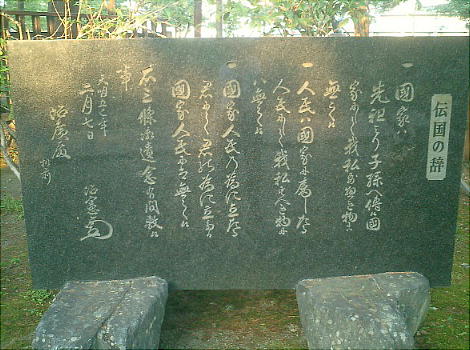 伝国の辞
一 国家ハ
先祖より子孫へ傳候国
家にして我私すへき物に
無之候
一 人民ハ国家に属したる
人民にして我私すへき物に
ハ無之候
一 国家人民の為に立たる
君にして君の為に立たる
国家人民にハ無之候
右三條御遺念有間敷候
事
天明五巳年
二月七日 治憲
治廣殿 机前